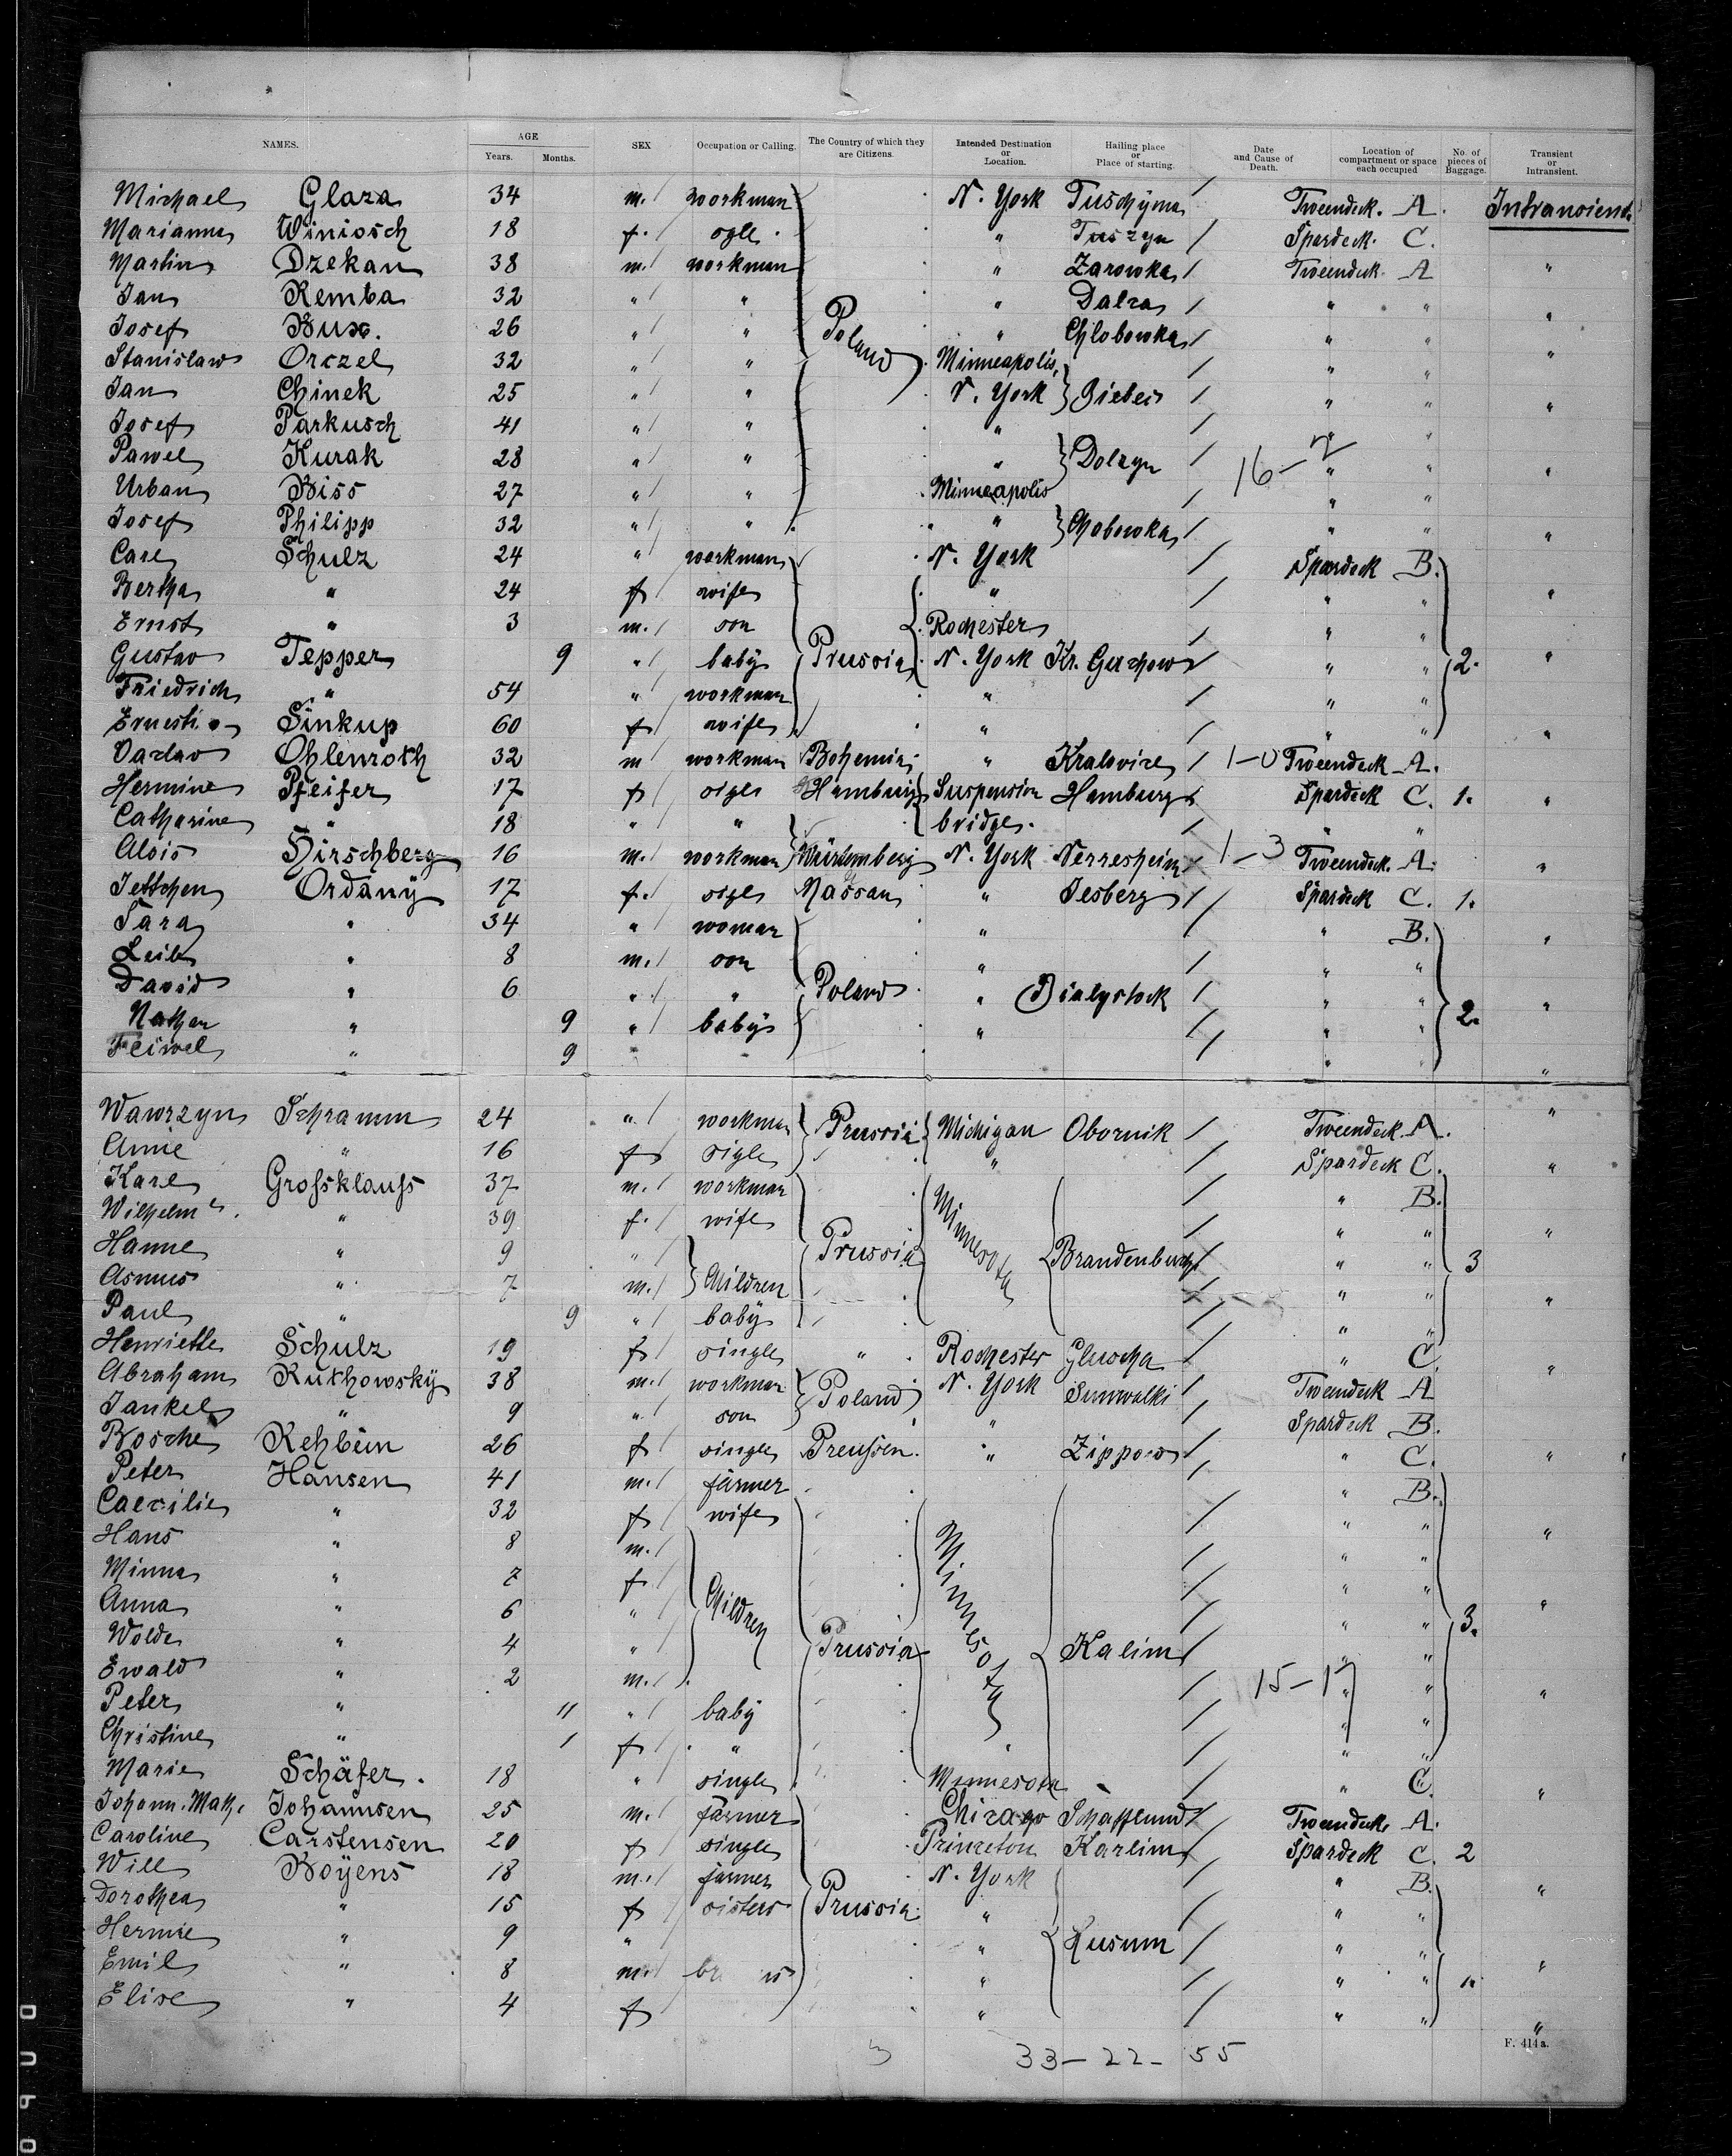 NAMES. AGE Years. Months. SEX Occupation or Calling. The Country of which they are Citizens. Intended Destination or Location. Hailing place or Place of starting. Date and Cause of Death. Location of compartment or space each occupied No. of pieces of Baggage. Transient or Intransient.
Michael Glaza 34 m. workman N. York Tuschyma Tweendeck. A. Intransient.
Marianna Winiosch 18 f. sgle. " Tuszyn Spardeck. C.
Martin Dzekan 38 m. workman " Zarowka Tweendeck. A "
Jan Remba 32 " " " Dalza " "
Josef Bux. 26 " " Poland " Chlobowka " " "
Stanislaw Orczel 32 " " Minneapolis. " " "
Jan Chinek 25 " " N. York " " "
Josef Parkusch 41 " " " " "
Pawel Kurak 28 " " " Dolzyn 16- " " "
Urban Biss 27 " " Minneapolis " "
Josef Philipp 32 " " " Chobowka " " "
Carl Schulz 24 " workman N. York Spardeck B.
Bertha " 24 f wife " " " "
Ernst " 3 m. son Rochester " "
Gustav Tepper 9 " baby Prussia N. York " " 2. "
Friedrich " 54 " workman " " "
Sinkup 60 f wife " " " "
Ohlenroth 32 m workman Bohemia " 1-0 Tweendeck A.
Hermine Pfeifer 17 f sigle Hamburg Suspension Hamburg Spardeck C. 1. "
Catharine " 18 " " bridge. " "
Alois Hirschberg 16 m. workman Würtemberg N. York Nerresheim 1-3 Tweendeck. A. "
Jettchen Ordany 17 f. sigle Nassau " Jesberg Spardeck C. 1.
Sara " 34 " woman " " B. "
Leib " 8 m. son " " "
David " 6 " " Poland " Bialystock " " "
Nathan " 9 " baby " " " 2.
Feiwel " 9 " "
Wawrzyn Schramm 24 " workman Prussia Michigan Obornik Tweendeck A. "
Anne " 16 f sigle " Spardeck C. "
Karl Großklauß 37 m. workman " B.
Wilhelme. " 39 f. wife " " "
Hanne " 9 " Prussia Minnesota Brandenburg " " 3
Asmus " 7 m. Children " " "
Paul " 9 " baby " "
Henriette Schulz 19 f single " Rochester Gluscha " C. "
Abraham Ruthowsky 38 m. workman Poland N. York Tweendeck A
Jankel " 9 " son " Spardeck B.
Rehbein 26 f single Preußen. " Zippow " C. "
Peter Hansen 41 m. farmer " B.
Caecilie " 32 f wife " " "
Hans " 8 m. " "
Minna " 7 f " "
Anna " 6 " Children Minnesota " " 3.
Wolde " 4 " Prussia Kalim " "
Ewald " 2 m. 15-17 " "
Peter " 11 " baby " "
Christine " 1 f " " "
Marie Schäfer. 18 " single Minnesota " C. "
Johann. Math. Johannsen 25 m. farmer Chicago Schafflund Tweendeck A.
Caroline Carstensen 20 f single Princeton Karlim Spardeck C. 2
Will Boÿens 18 m. farmer N. York " B.
Dorothea " 15 f sisters Prussia " " "
Hermie " 9 " " Husum " "
Emil " 8 m. " " " 1.
Elise " 4 f " " " "
33-22-55
F. 414 a.